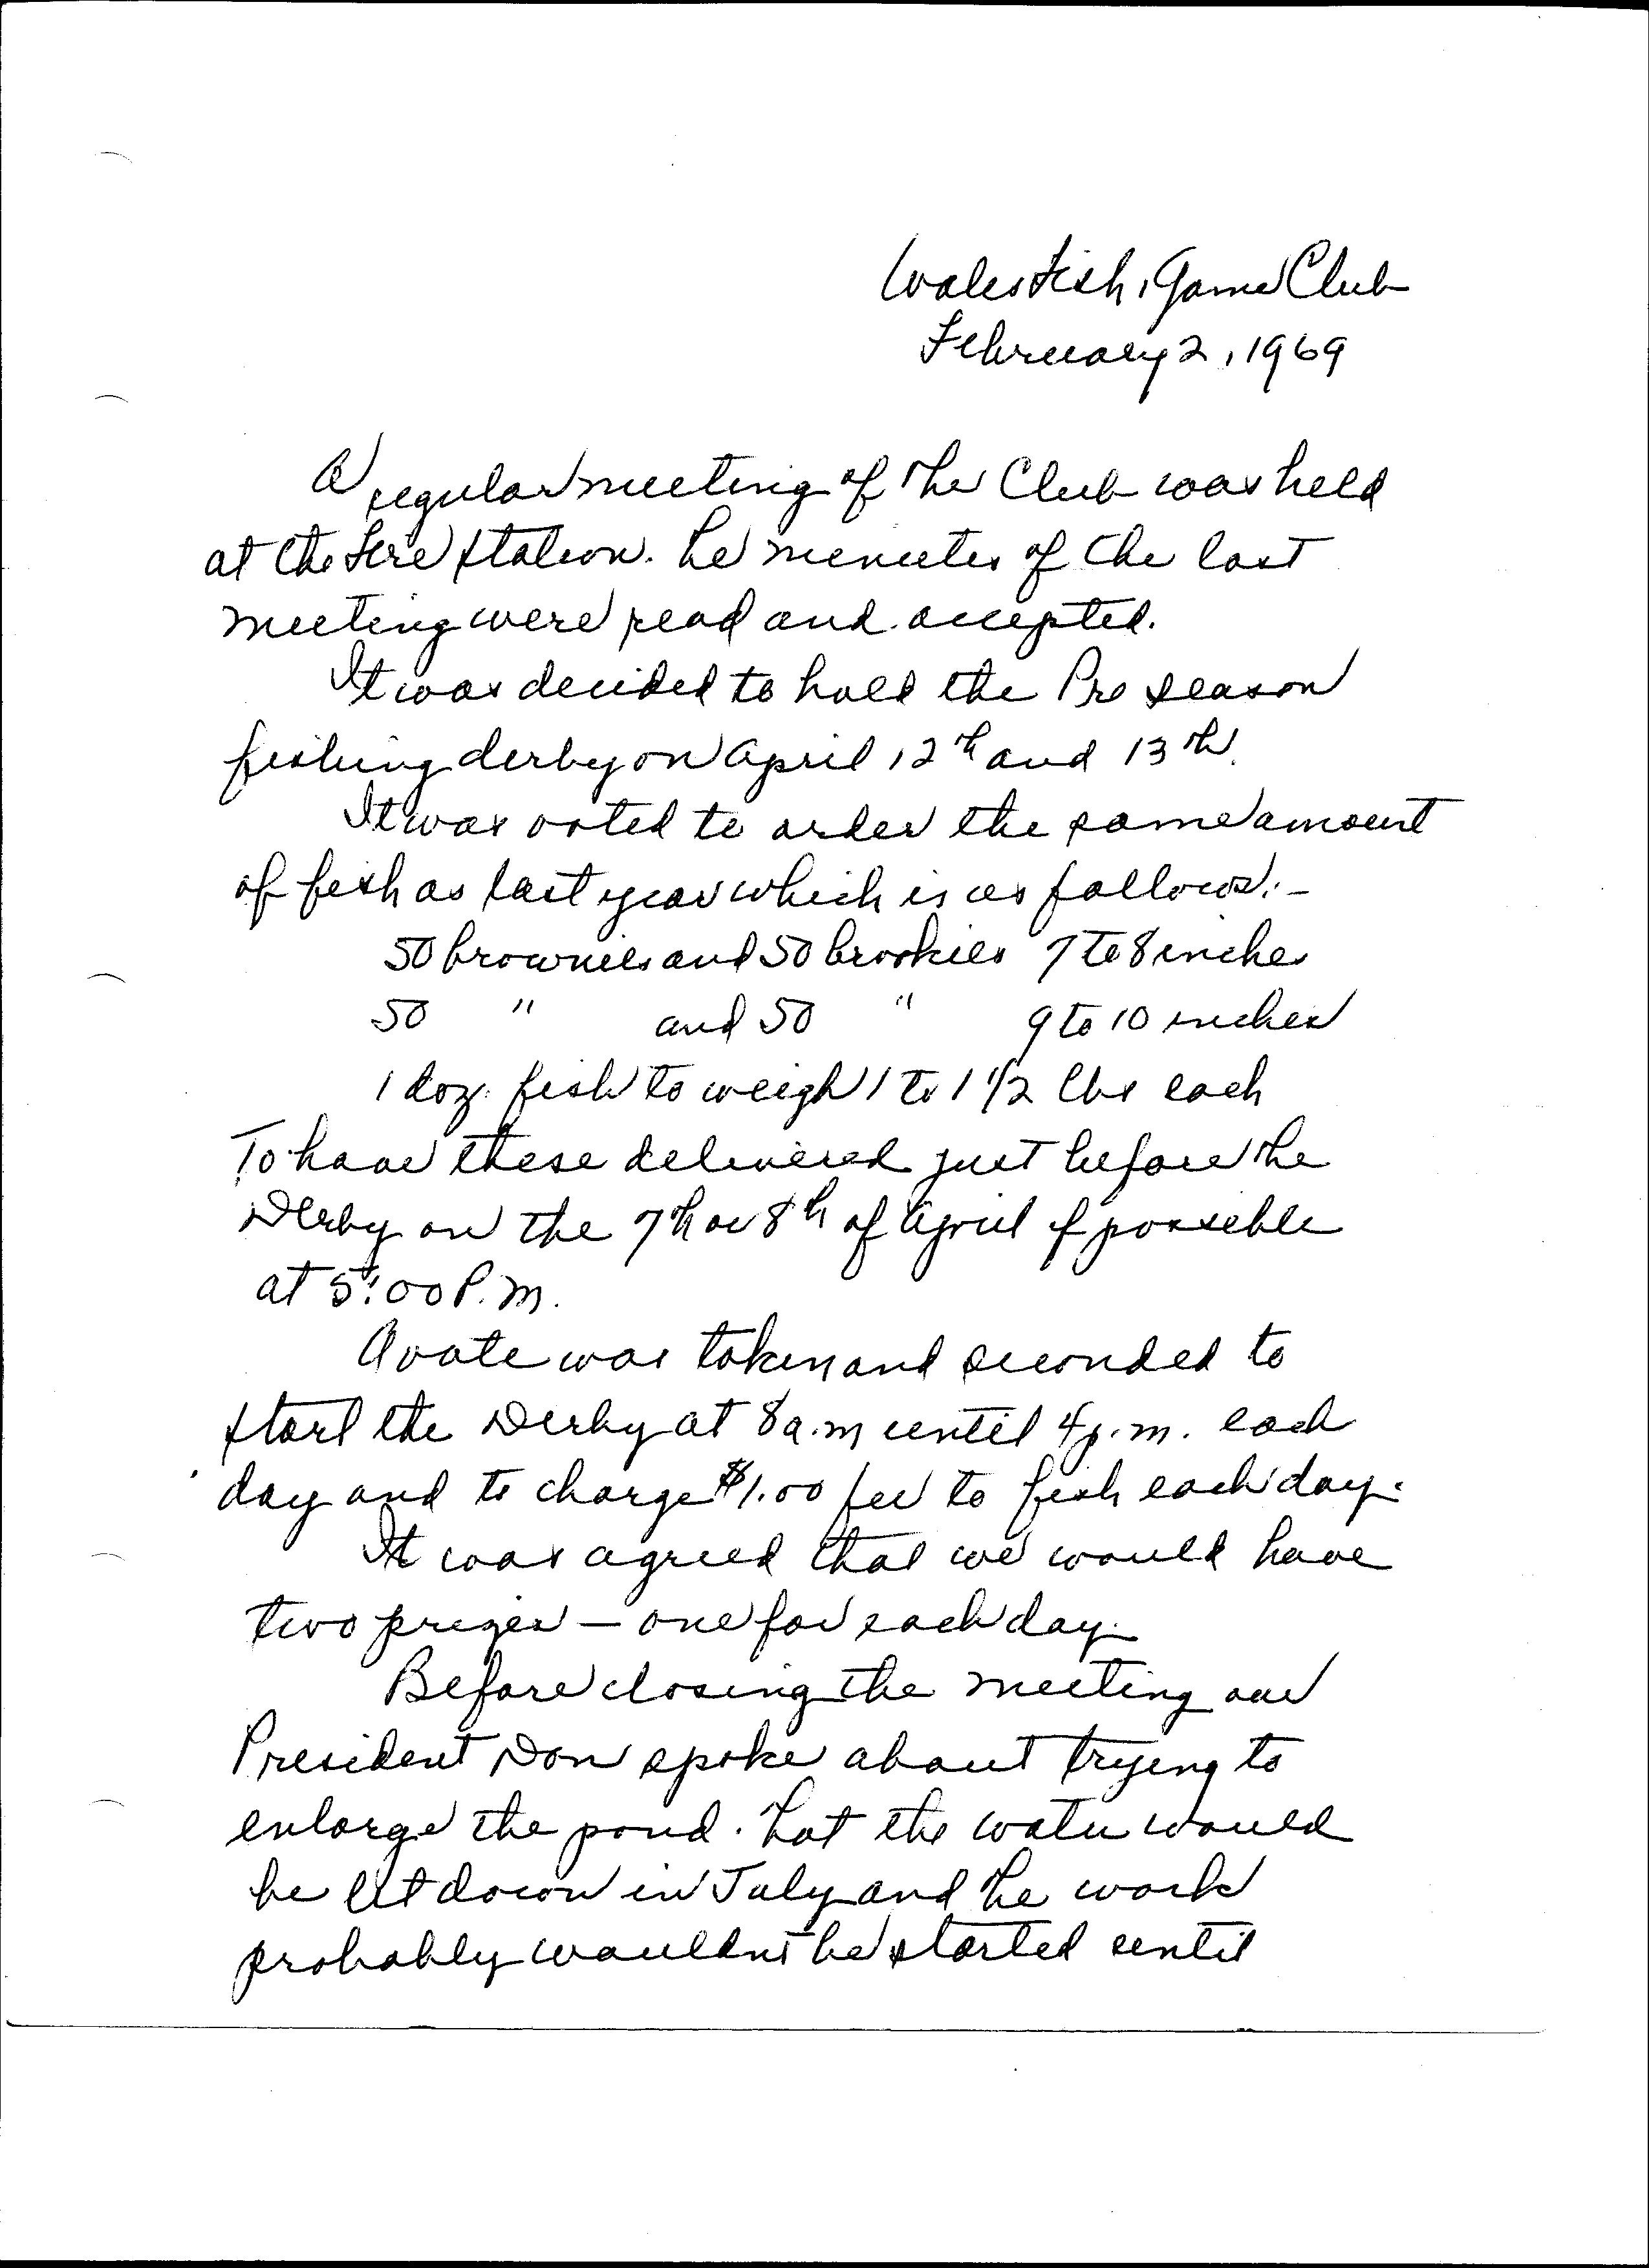 Wales Fish, Game Club
February 2, 1969
A regular meeting of the Club was held
at the Fire Station. The minutes of the last
meeting were read and accepted.
It was decided to hold the Pre season
fishing derby on April 12th and 13th.
It was voted to order the same amount
of fish as last year which is as follows:-
50 brownies and 50 brookies 7 to 8 inches
50 " and 50 " 9 to 10 inches
1 doz. fish to weigh 1 to 1 1/2 lbs each
To have these delivered just before the
Derby on the 7th or 8th of April if possible
at 5:00 P.M.
A vote was taken and seconded to
start the Derby at 8 a.m until 4 p.m. each
day and to charge $1.00 fee to fish each day.
It was agreed that we would have
two prizes — one for each day.
Before closing the meeting our
President Don spoke about trying to
enlarge the pond. That the water would
be let down in July and the work
probably wouldnt be started until